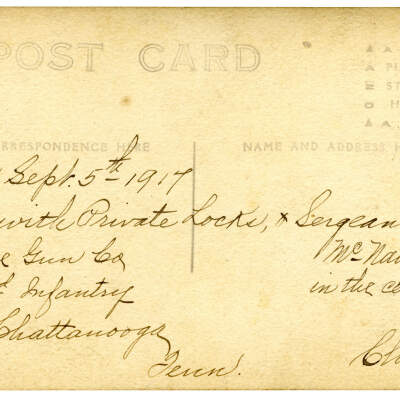 POST CARD
CORRESPONDENCE HERE
NAME AND ADDRESS H
Sept. 5th 1917
with Private Locks, & Sergean
e Gun Co
Infantry
Chattanooga
Tenn.
Mc Na
in the ce
Ch